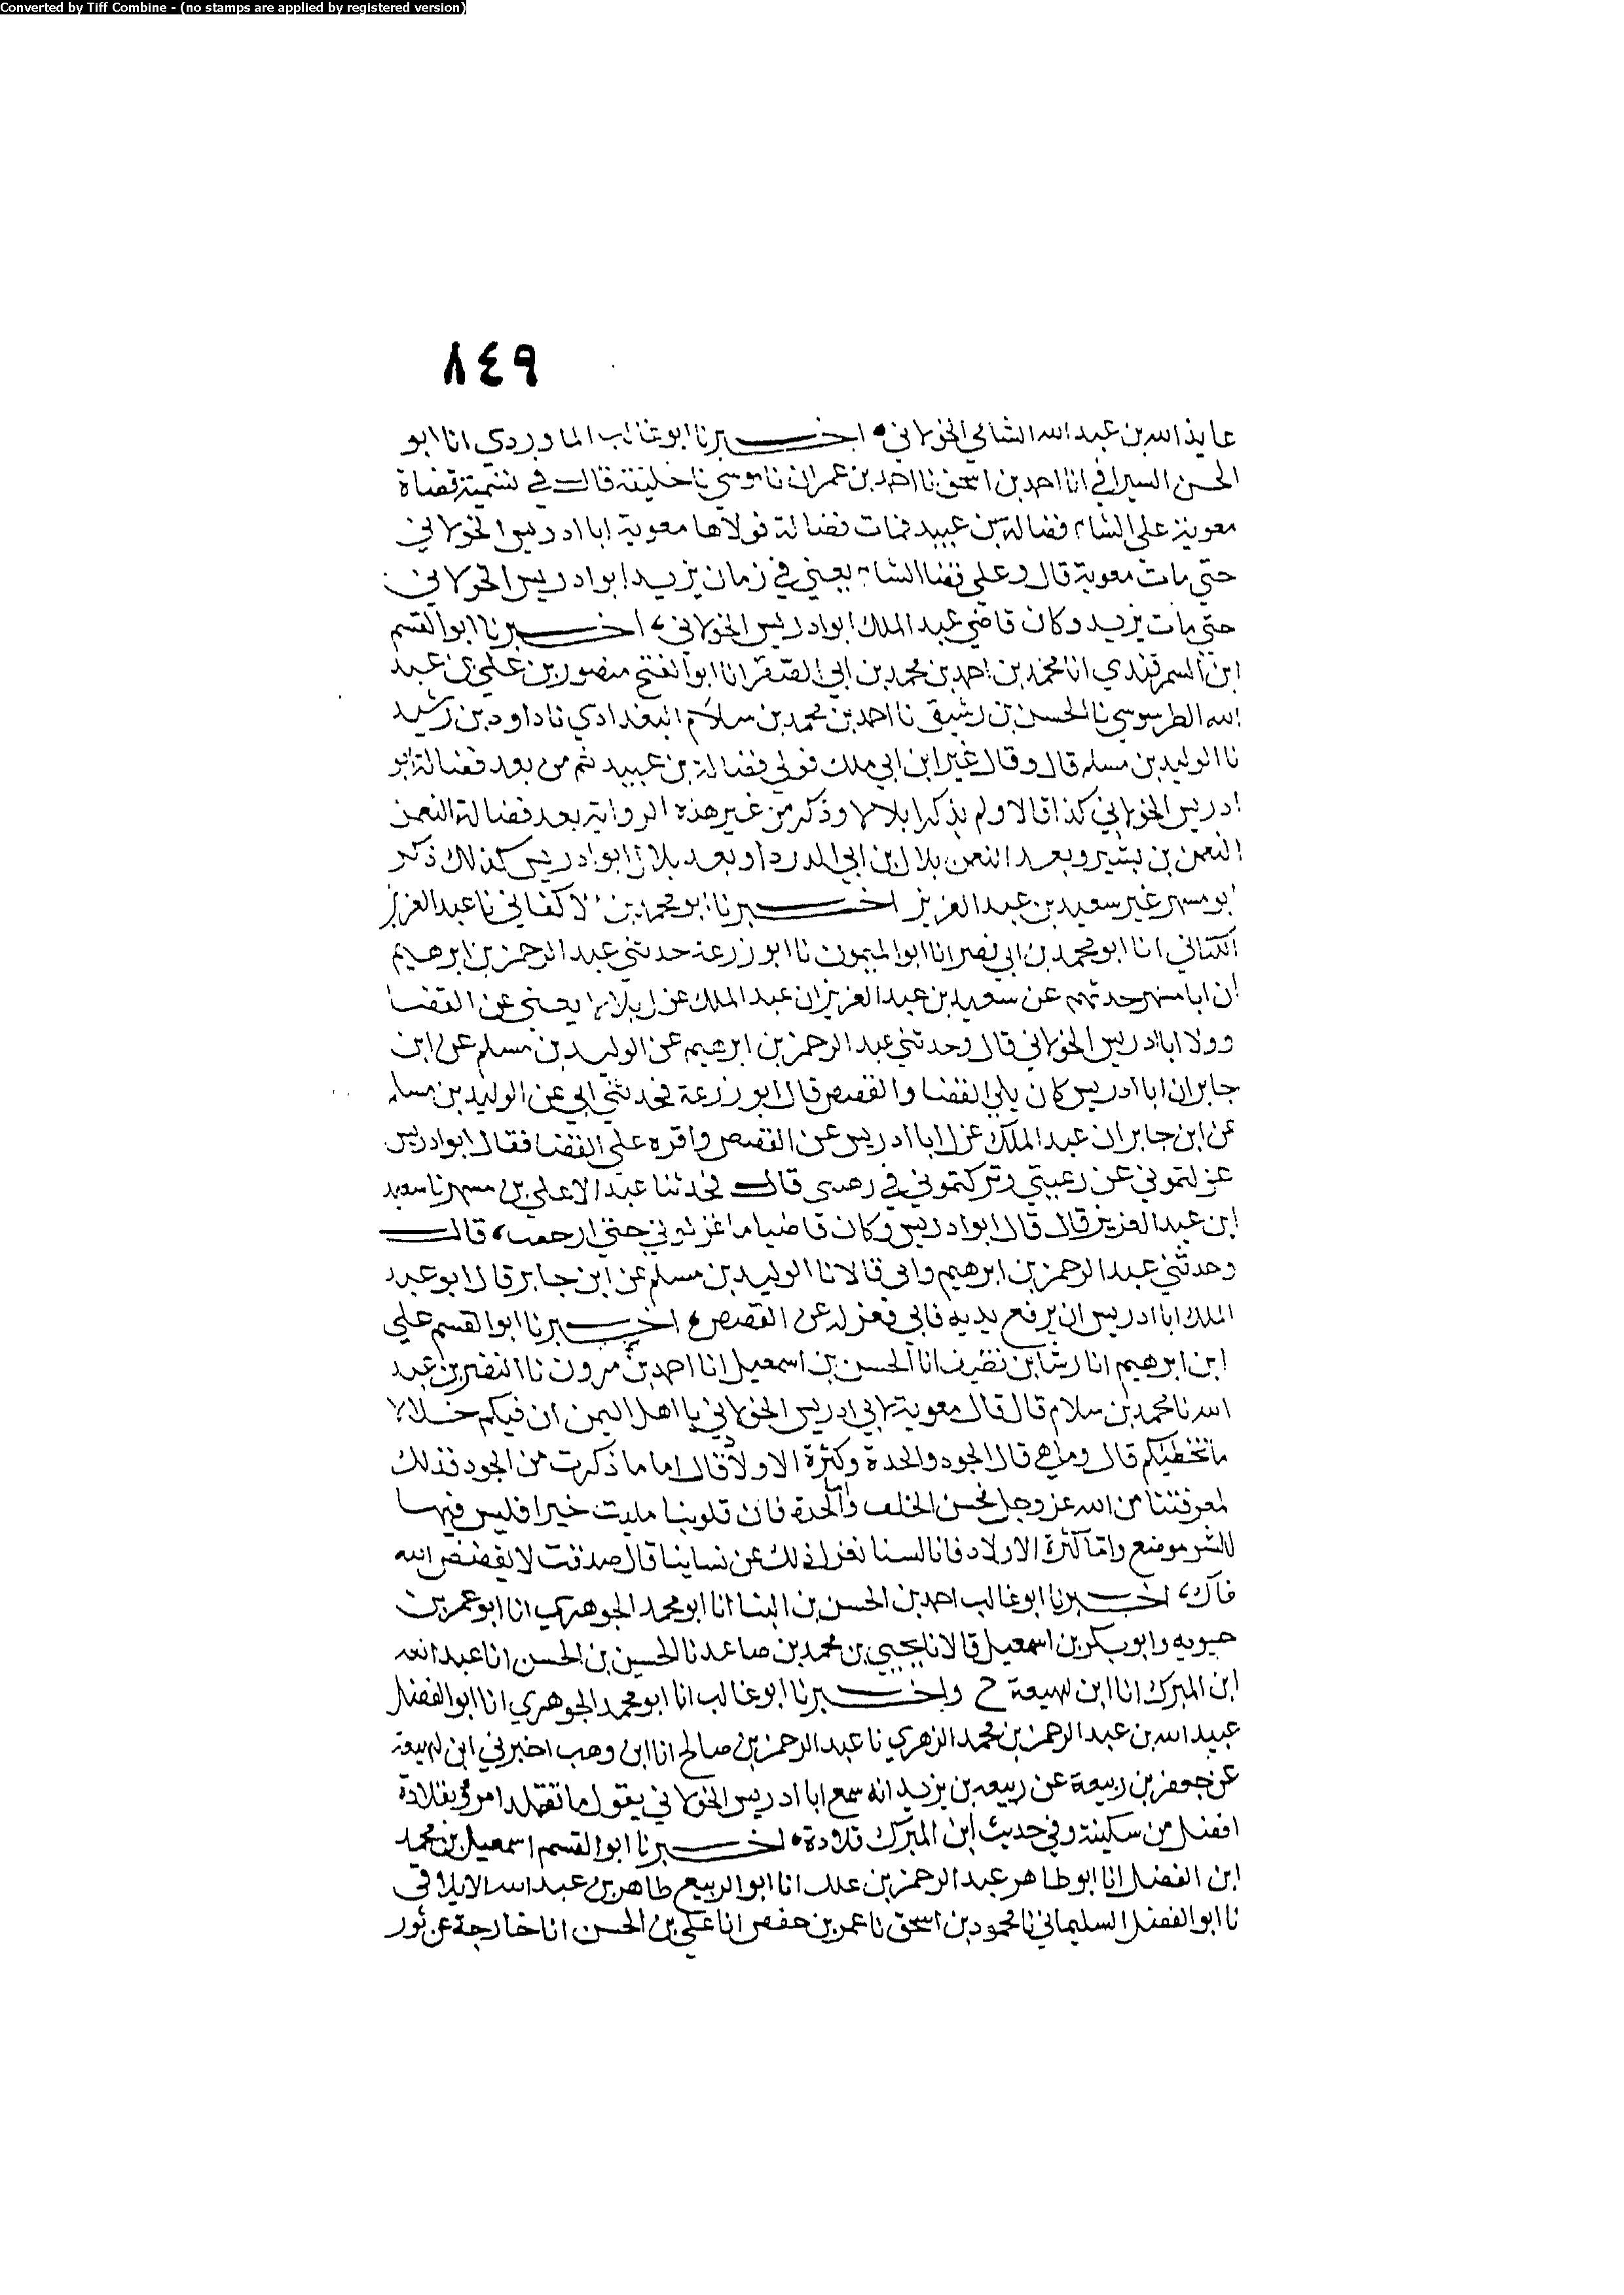 Converted by Tiff Combine - (no stamps are applied by registered version)
٨٤٩
عايذ الله بن عبد الله الشامي الخولاني اخبرنا ابو غالب الماوردي انا ابو
الحسن السيرافي انا احمد بن اسحق نا احمد بن عمران نا موسي نا خليفة قال في تسمية قضاة
معوية علي الشام فضالة بن عبيد فمات فضالة فولاها معوية ابا ادريس الخولاني
حتي مات معوية قال وعلي قضا الشام يعني في زمان يزيد ابو ادريس الخولاني
حتي مات يزيد وكان قاضي عبد الملك ابو ادريس الخولاني اخبرنا ابو القسم
ابن السمرقندي انا محمد بن احمد بن محمد بن ابي الصقر انا ابو الفتح منصور بن علي بن عبد
الله الطرسوسي نا الحسن بن رشيق نا احمد بن محمد بن سلام البغدادي نا داود بن رشيد
نا الوليد بن مسلم قال وقال غير ابن ابي ملك فولي فضالة بن عبيد ثم من بعد فضالة ابو
ادريس الخولاني كذا قالا ولم يذكرا بلالا وذكر من غير هذه الرواية بعد فضالة النعمن
النعمن بن بشير وبعد النعمن بلال ابن ابي الدرداء وبعد بلال ابو ادريس كذلك ذكر
ابو مسهر غير سعيد بن عبد العزيز اخبرنا ابو محمد بن الاكفاني نا عبد العزيز
الكتاني انا ابو محمد بن ابي نصر انا ابو الميمون نا ابو زرعة حدثني عبد الرحمن بن ابرهيم
ان ابا مسهر حدثهم عن سعيد بن عبد العزيز ان عبد الملك عزل بلالا يعني عن القضا
وولا ابا ادريس الخولاني قال وحدثني عبد الرحمن بن ابرهيم عن الوليد بن مسلم عن ابن
جابر ان ابا ادريس كان يلي القضا والقصص قال ابو زرعة فحدثني ابي عن الوليد بن مسلم
عن ابن جابر ان عبد الملك عزل ابا ادريس عن القصص واقره علي القضا فقال ابو ادريس
عزلتموني عن رغبتي وتركتموني في رهبتي قال فحدثنا عبد الاعلي بن مسهر نا سعيد
ابن عبد العزيز قال قال ابو ادريس وكان قاضيا ما عزلوني حتي ارجعت قال
وحدثني عبد الرحمن بن ابرهيم وابي قالا نا الوليد بن مسلم عن ابن جابر قال ابو عبد
الملك ابا ادريس ان يرفع يديه فابي فعزله عن القصص اخبرنا ابو القسم علي
ابن ابرهيم انا رشا بن نظيف انا الحسن بن اسمعيل انا احمد بن مرون نا النضر بن عبد
الله نا محمد بن سلام قال قال معوية لابي ادريس الخولاني يا اهل اليمن ان فيكم خلالا
ما تخطيكم قال وما هي قال الجود والحدة وكثرة الاولاد قال اما ما ذكرت من الجود فذلك
لمعرفتنا من الله عز وجل بحسن الخلف واما الحدة فان قلوبنا مليت خيرا فليس فيها
للشر موضع واما كثرة الاولاد فانا لسنا نعزل ذلك عن نساينا قال صدقت لا يفضض الله
فاك اخبرنا ابو غالب احمد بن الحسن بن البنا انا ابو محمد الجوهري انا ابو عمر بن
حيويه وابو بكر بن اسمعيل قالا نا يحيي بن محمد بن صاعد نا الحسين بن الحسن انا عبد الله
ابن المبرك انا ابن لهيعة ح واخبرنا ابو غالب انا ابو محمد الجوهري انا ابو الفضل
عبيد الله بن عبد الرحمن بن محمد الزهري نا عبد الرحمن بن صالح انا ابن وهب اخبرني ابن لهيعة
عن جعفر بن ربيعة عن ربيعه بن يزيد انه سمع ابا ادريس الخولاني يقول ما تقلد امرؤ بقلادة
افضل من سكينة وفي حديث ابن المبرك قلادة اخبرنا ابو القسم اسمعيل بن محمد
ابن الفضل انا ابو طاهر عبد الرحمن بن علك انا ابو الربيع طاهر بن عبد الله الايلاقي
نا ابو الفضل السليماني نا محمود بن اسحق نا عمر بن حفص انا علي بن الحسن انا خارجة عن ثور